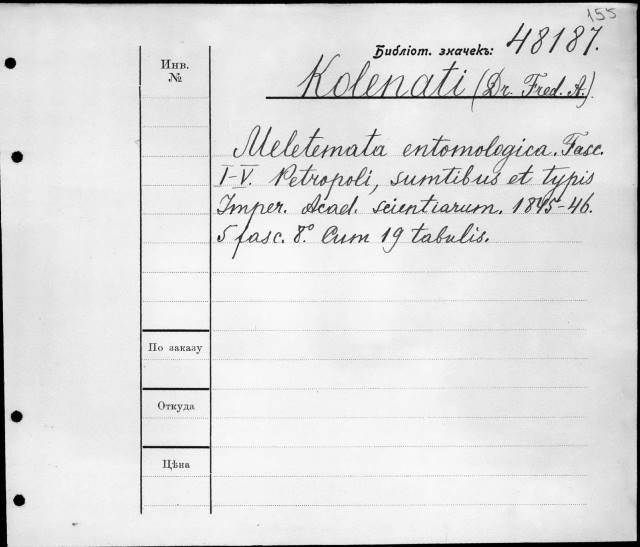 155
Библіот. значекъ: 48187.
Инв.
№
Kolenati (Dr. Fred. A.).
Meletemata entomologica. Fasc.
I-V. Petropoli, sumtibus et typis
Imper. Acad. scientiarum. 1845-46.
5 fasc. 8°. Cum 19 tabulis.
По заказу
Откуда
Цѣна